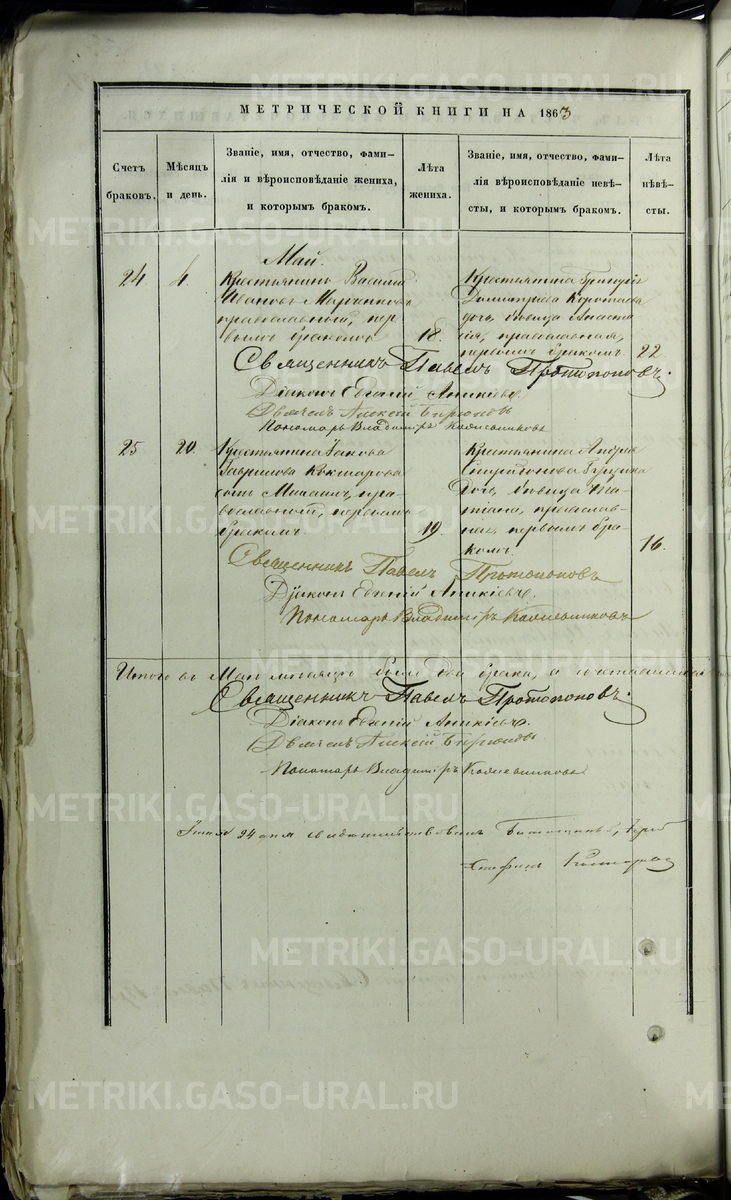 МЕТРИЧЕСКОЙ КНИГИ НА 1863
Счетъ браковъ.
Мѣсяцъ и день.
Званіе, имя, отчество, фами-
лія и вѣроисповѣданіе жениха,
и которымъ бракомъ.
Лѣта жениха.
Званіе, имя, отчество, фами-
лія вѣроисповѣданіе невѣ-
сты, и которымъ бракомъ.
Лѣта невѣ-
сты.
Май.
24
4
Крестьянинъ Василій
Ивановъ
православный, пер-
вымъ бракомъ
18.
Крестьянина Григорія
Димитріева
дочь, дѣвица Анаста
сія, православная,
первымъ бракомъ
22
Священникъ Павелъ Протопоповъ.
Діаконъ Евгеній Аникіевъ.
Дьячекъ Алексій Бирюковъ
Пономарь Владиміръ
25
20.
Крестьянина Іакова
Гаврилова Кокшарова
сынъ Михаилъ, пра-
вославный, первымъ
бракомъ.
19.
Крестьянина Андрея
дочь, дѣвица Та-
тіана, православ-
ная, первымъ бра-
комъ.
16.
Священникъ Павелъ Протопоповъ
Діаконъ Евгеній Аникіевъ.
Пономарь Владиміръ
Итого въ Маѣ мѣсяцѣ было два брака, а сочетавшихся
Священникъ Павелъ Протопоповъ.
Діаконъ Евгеній Аникіевъ.
Дьячекъ Алексій Бирюковъ
Пономарь Владиміръ
24 дня свидѣтельствовалъ
METRIKI.GASO-URAL.RU